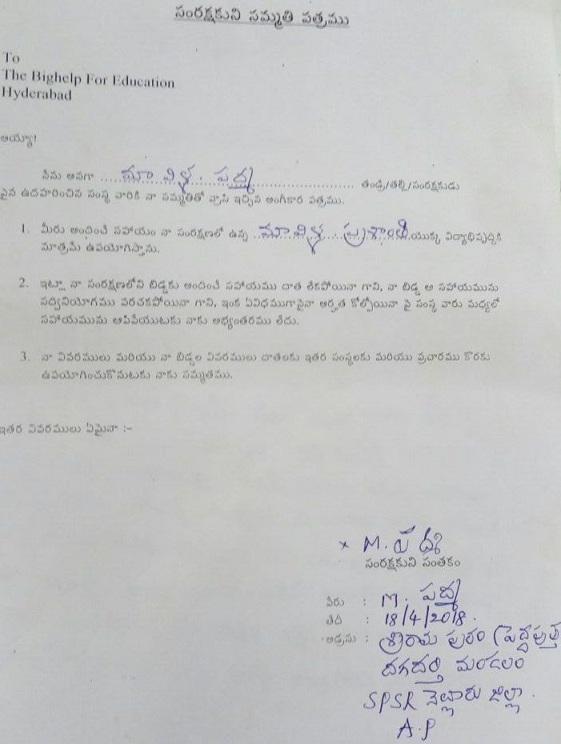 సంరక్షకుని సమ్మతి పత్రము
To
The Bighelp For Education
Hyderabad
అయ్యా!
నేను అనగా ..... మావిళ్ల. పద్మ ..... తండ్రి/తల్లి/సంరక్షకుడు
పైన ఉదహరించిన సంస్థ వారికి నా సమ్మతితో వ్రాసి ఇచ్చిన అంగీకార పత్రము.
1. మీరు అందించే సహాయం నా సంరక్షణలో ఉన్న ..మావిళ్ల.. ప్రశాంతి యొక్క విద్యాభివృద్ధికి
మాత్రమే ఉపయోగిస్తాను.
2. ఇట్లా నా సంరక్షణలోని బిడ్డకు అందించే సహాయము దాత లేకపోయినా గాని, నా బిడ్డ ఆ సహాయమును
సద్వినియోగము పరచకపోయినా గాని, ఇంక ఏవిధముగానైనా అర్హత కోల్పోయినా పై సంస్థ వారు మధ్యలో
సహాయమును ఆపివేయుటకు నాకు అభ్యంతరము లేదు.
3. నా వివరములు మరియు నా బిడ్డల వివరములు దాతలకు ఇతర సంస్థలకు మరియు ప్రచారము కొరకు
ఉపయోగించుకొనుటకు నాకు సమ్మతము.
ఇతర వివరములు ఏమైనా :-
× M. పద్మ
సంరక్షకుని సంతకం
పేరు : M. పద్మ
తేది : 18/4/2018.
అడ్రసు : శ్రీరామ పురం
దగదర్తి మండలం
SPSR నెల్లూరు జిల్లా.
A.P